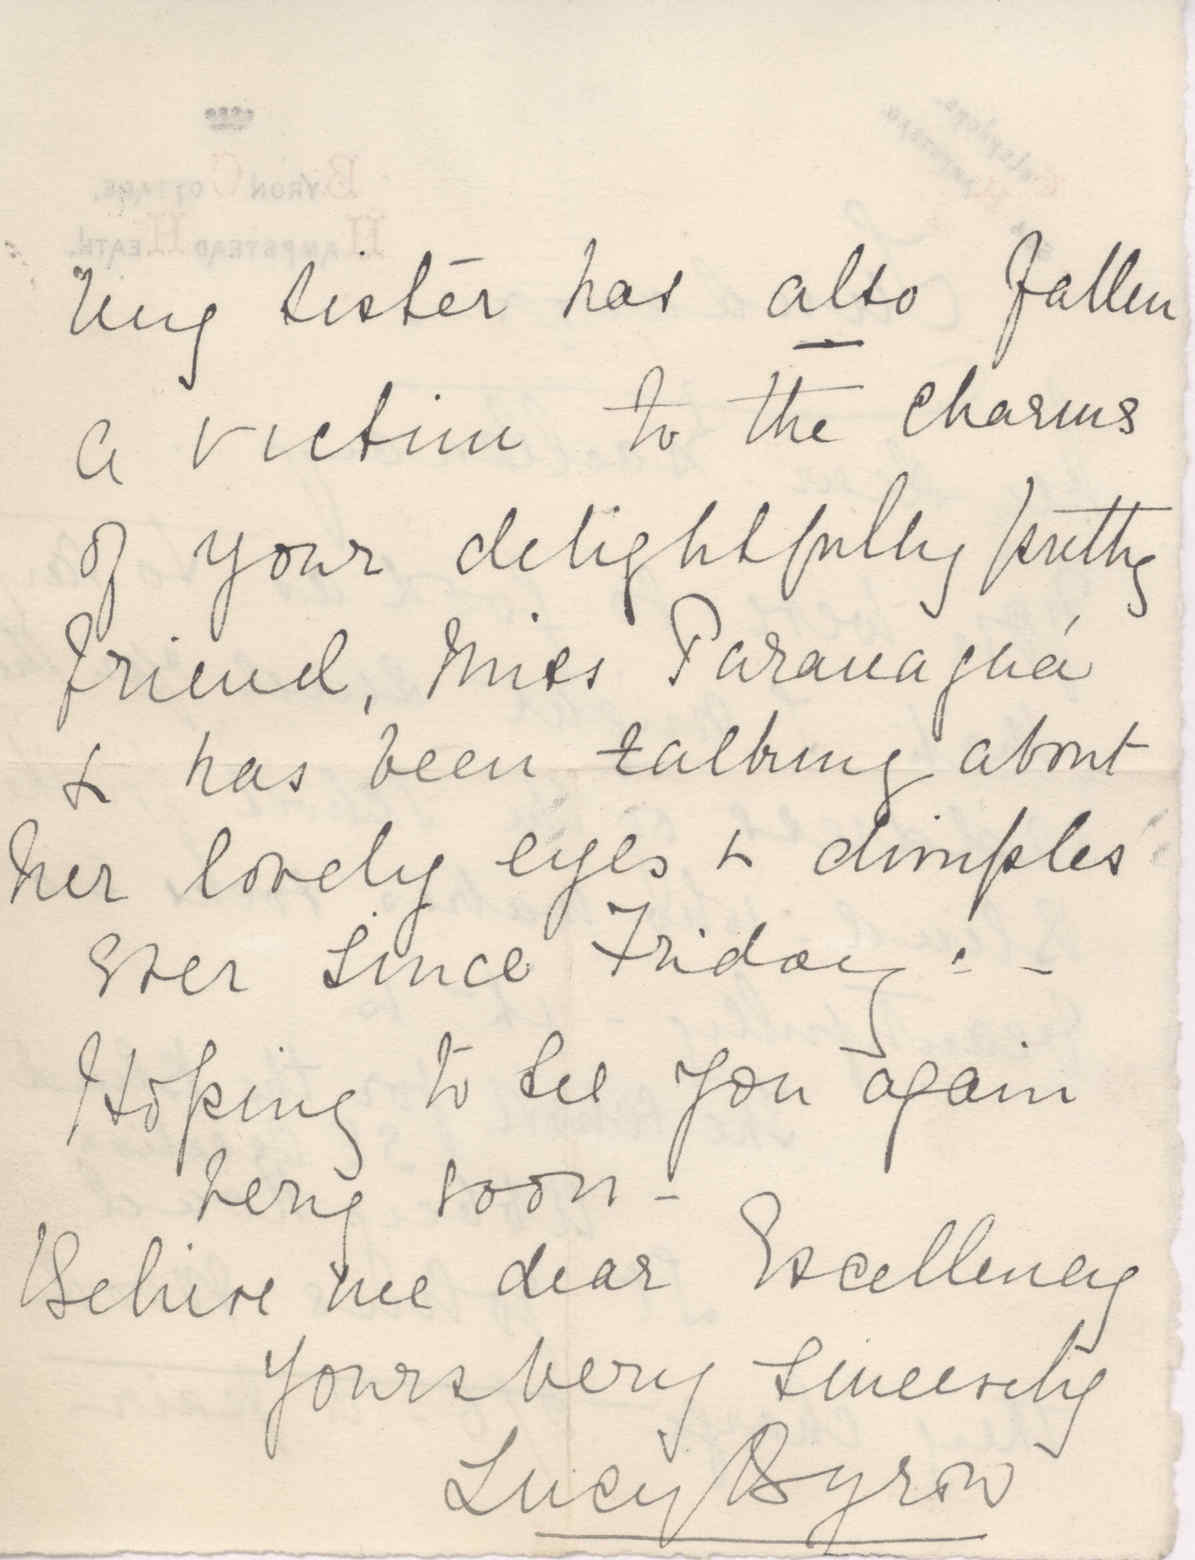 My sister has also fallen
a victim to the charms
of your delightfully pretty
friend, Miss Paranaguá
& has been talking about
her lovely eyes & dimples
ever since Friday. -
Hoping to see you again
very soon -
Believe me dear Excellency
Yours very sincerely
Lucy Byron
Byron Cottage,
Hampstead Heath.